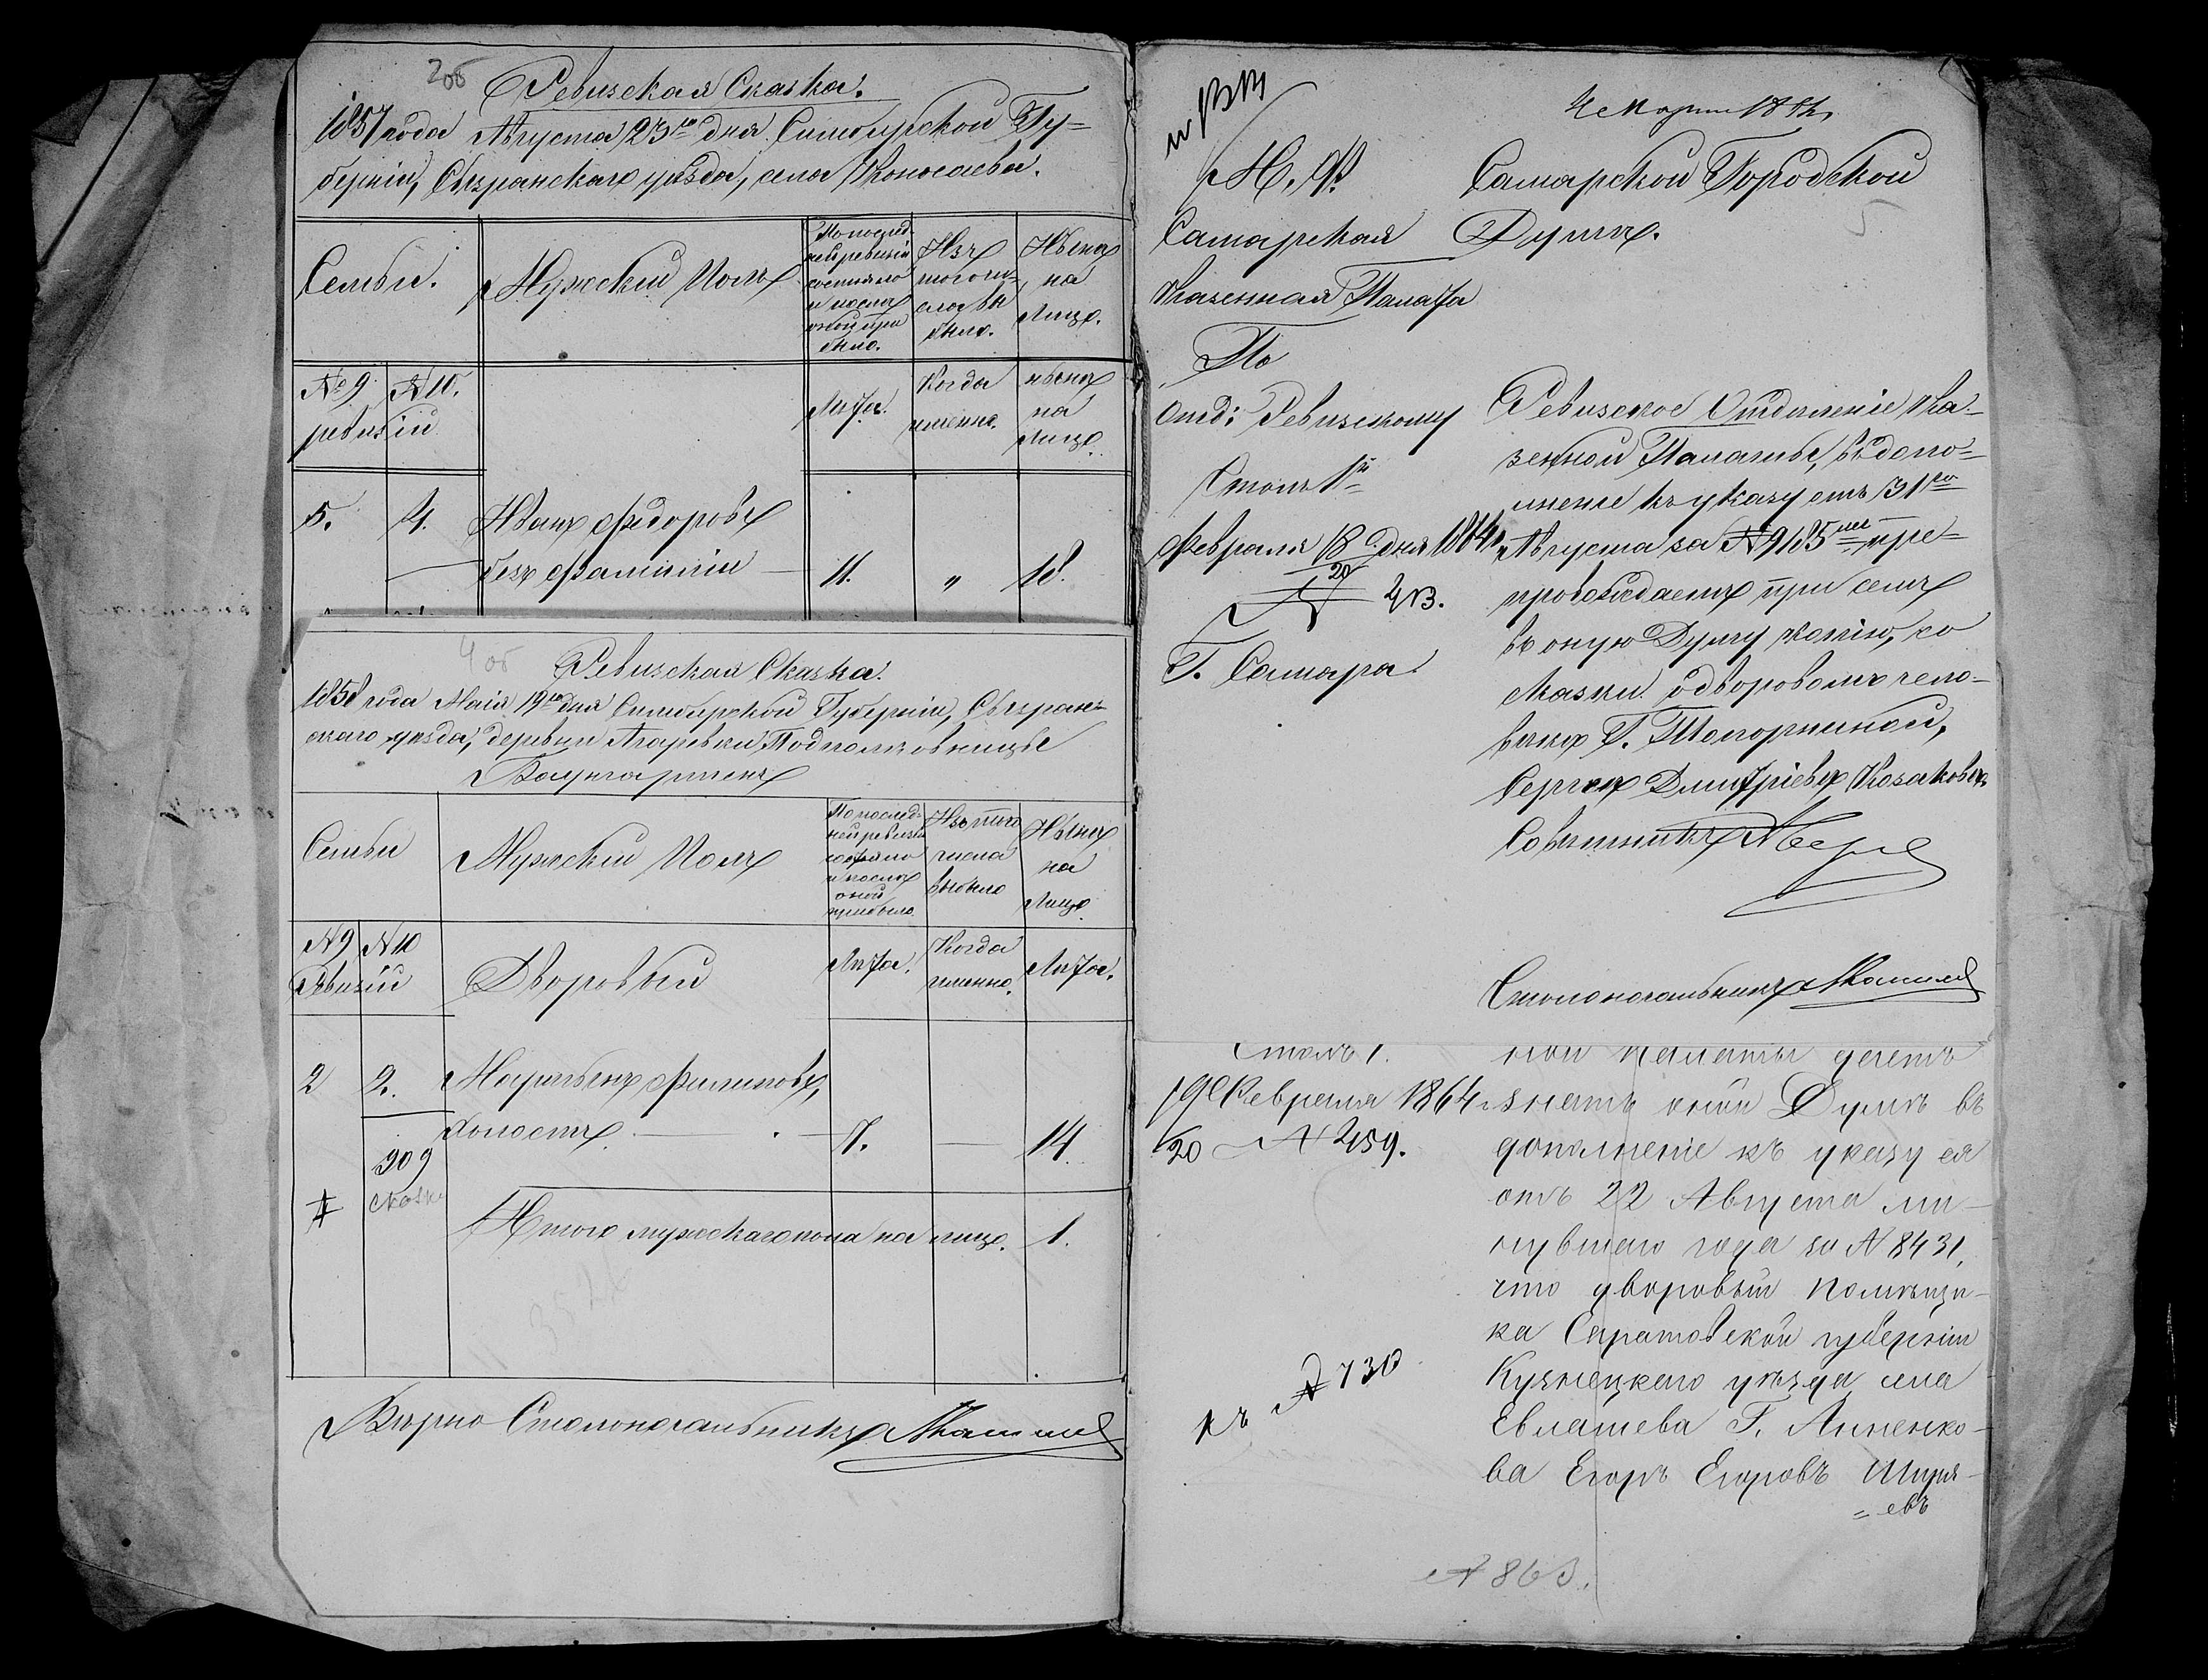 2об
Ревизская Сказка.
1857 года Августа 23го дня Симбирской Гу=
берніи, Сызранскаго уѣзда, села
Семьи.
Мужескій Полъ
По послед
ней ревизіи
состояло
и послѣ
оной при
было.
Изъ
того чи=
сла вы
было.
Нынѣ
на
Лицо.
№ 9. № 10.
ревизіи
Лѣта.
Когда
именно.
нынѣ
на
лицо.
5. 4. Иванъ Федоровъ
безъ фамиліи — 11. „ 18.
4 об
Ревизская Сказка.
1858 года Маія 19го дня Симбирской Губерніи, Сызран=
скаго уѣзда, деревни Подполковницы
Семьи
Мужескій Полъ
По послед=
ней ревизіи
состояло
и послѣ
оной
прибыло.
Изъ того
числа
выбыло
Нынѣ
на
Лицо.
№ 9 № 10
Ревизіи
Дворовый
Лѣта.
Когда
именно.
Лѣта.
2 2. Филиповъ,
холостъ. — 7. — 14.
209
сказки
Итого мужскаго пола на лицо. 1.
Вѣрно Столоначальникъ
М. Ф.
Самарская
Казенная Палата
По
Отд: Ревизскому
Столъ 1й
Февраля 18 дня 1864 г.
20
№ 413.
Г. Самара.
Самарской Городской
Думѣ.
5
Ревизское Отдѣленіе Ка=
зенной Палаты, въ допо=
лненіе къ указу отъ 31го
Августа за № 9185 пре=
провождаетъ при семъ
въ оную Думу копію, со
сказки о дворовомъ чело=
вѣкѣ Г.
Сергѣѣ Дмитріевѣ Козаковѣ.
Совѣтникъ
Столоначальникъ
Столъ 1.
19 Февраля 1864 г.
20 № 459.
ной палаты даетъ
знать оной Думѣ въ
дополненіе къ указу ея
отъ 22 Августа ми-
нувшаго года за № 8431,
что дворовый помѣщи-
ка Саратовской губерніи
Кузнецкаго уѣзда села
Евлашева Г. Анненко-
ва Егоръ Егоровъ Ширя-
=евъ
къ № 730
№ 863.